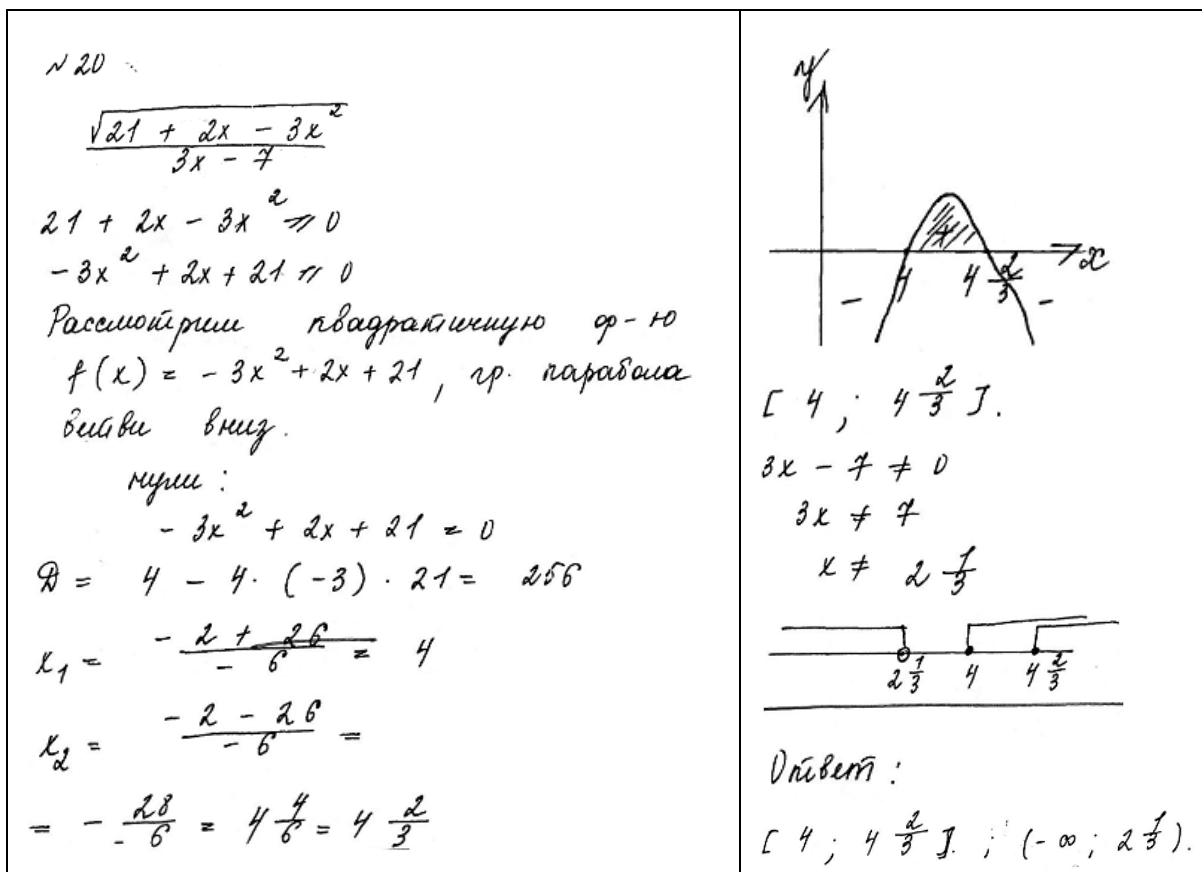 № 20
√(21 + 2x - 3x²) / (3x - 7)
21 + 2x - 3x² ⩾ 0
-3x² + 2x + 21 ⩾ 0
Рассмотрим квадратичную ф-ю
f(x) = -3x² + 2x + 21, гр. парабола
ветви вниз.
нули:
-3x² + 2x + 21 = 0
D = 4 - 4·(-3)·21 = 256
x₁ = (-2 + 26)/(-6) = 4
x₂ = (-2 - 26)/(-6) =
= -28/-6 = 4 4/6 = 4 2/3
y
+
4 4 2/3 x
- -
[4; 4 2/3].
3x - 7 ≠ 0
3x ≠ 7
x ≠ 2 1/3
2 1/3 4 4 2/3
Ответ:
[4; 4 2/3]; (-∞; 2 1/3).